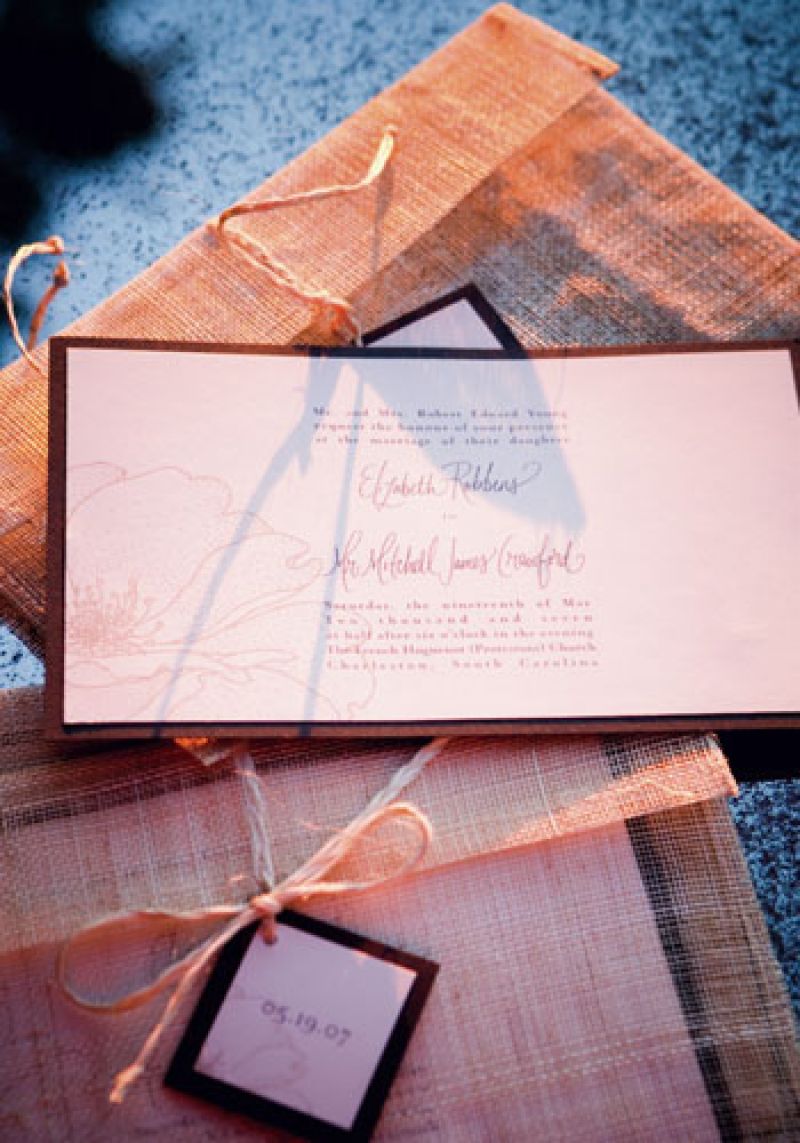 Mr. and Mrs. Robert Edward Young
request the honour of your presence
at the marriage of their daughter
Elizabeth Robbens
to
Mr. Mitchell James Crawford
Saturday, the nineteenth of May
Two thousand and seven
at half after six o'clock in the evening
The French Huguenot (Protestant) Church
Charleston, South Carolina
05.19.07